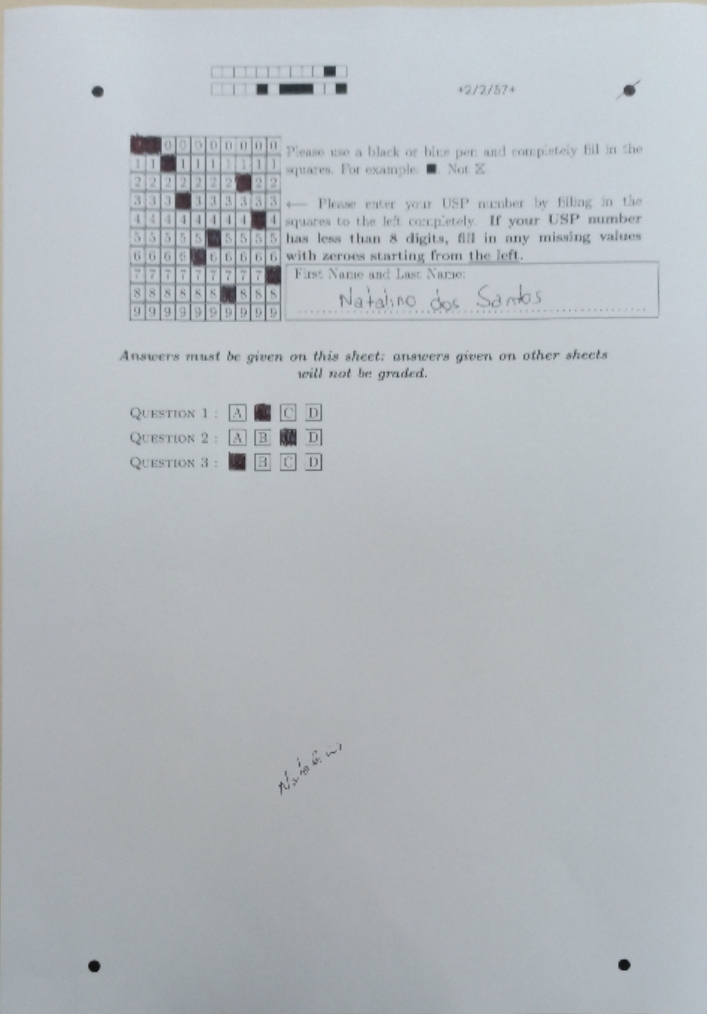 +2/2/57+
0 0 0 0 0 0 0 0
1 1 1 1 1 1 1 1 1
2 2 2 2 2 2 2 2 2
3 3 3 3 3 3 3 3 3
4 4 4 4 4 4 4 4 4
5 5 5 5 5 5 5 5 5
6 6 6 6 6 6 6 6 6
7 7 7 7 7 7 7 7 7
8 8 8 8 8 8 8 8 8
9 9 9 9 9 9 9 9 9 9
Please use a black or blue pen and completely fill in the
squares. For example: ■. Not ☒.
← Please enter your USP number by filling in the
squares to the left completely. If your USP number
has less than 8 digits, fill in any missing values
with zeroes starting from the left.
First Name and Last Name:
Natalino dos Santos
Answers must be given on this sheet: answers given on other sheets
will not be graded.
QUESTION 1 : A C D
QUESTION 2 : A B D
QUESTION 3 : B C D